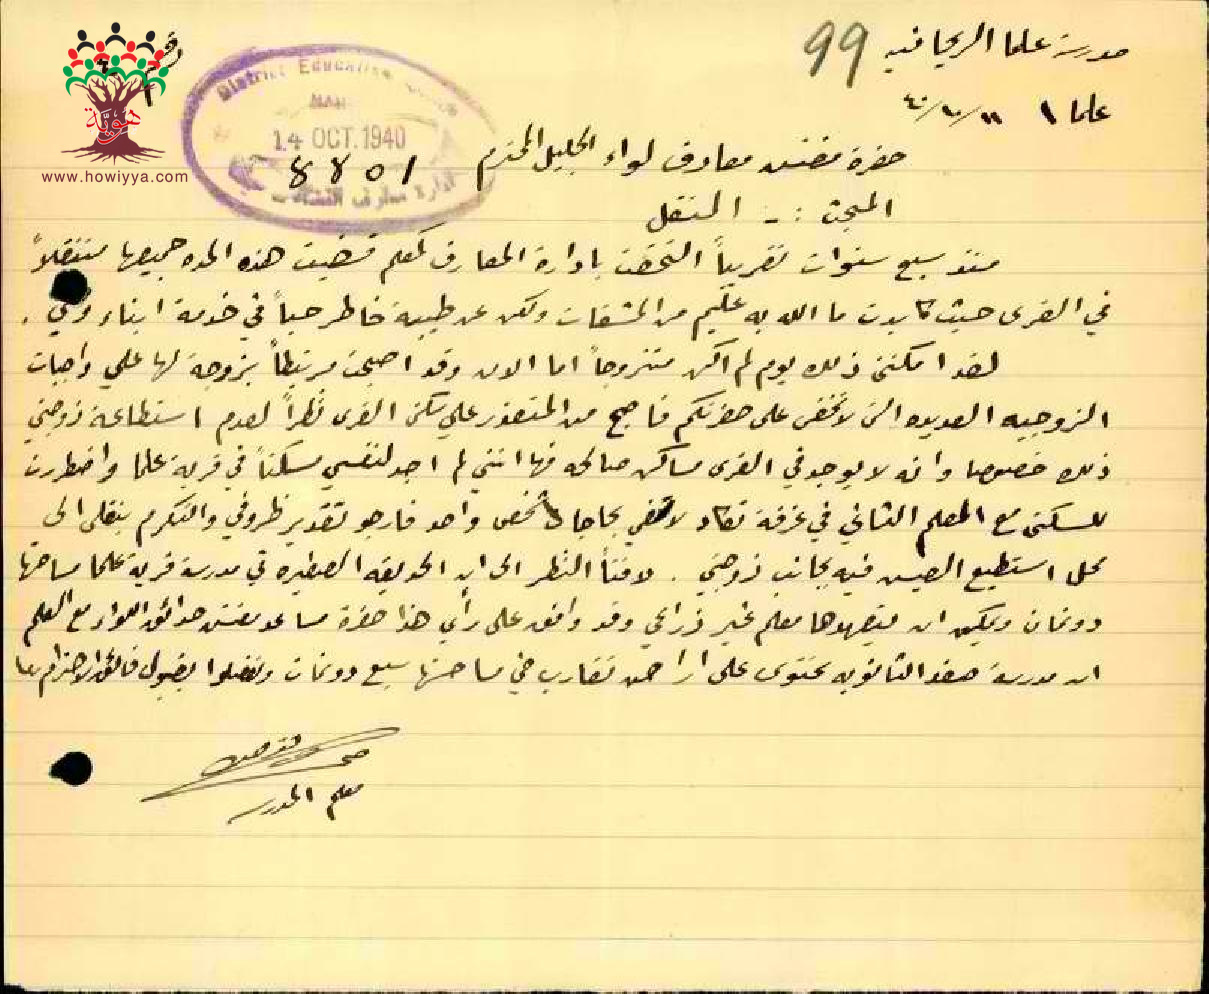 99
مدرسة علما الريحانيه
علما ١١/١٠/٤٠
رقم
هويّة
www.howiyya.com
District Education
14 OCT. 1940
8801
ادارة معارف
حضرة مفتش معارف لواء الجليل المحترم
المبحث :- النقل
منذ سبع سنوات تقريباً التحقت بادارة المعارف كمعلم قضيت هذه المده جميعها متنقلاً
في القرى حيث كابدت ما الله به عليم من المشقات ولكن عن طيبة خاطر حباً في خدمة ابناء وطني .
لقد امكنني ذلك يوم لم اكن متزوجاً اما الان وقد اصبحت مرتبطاً بزوجة لها علي واجبات
الزوجيه العديده التي لا تخفى على حضرتكم فاصبح من المتعذر علي سكنى القرى نظراً لعدم استطاعة زوجتي
ذلك خصوصا وانه لا يوجد في القرى مساكن صالحه فها انني لم اجد لنفسي مسكناً في قرية علما واضطررت
للسكنى مع المعلم الثاني في غرفة تكاد لا تفي بحاجات شخص واحد فارجو تقدير ظروفي والتكرم بنقلي الى
محل استطيع العيش فيه بجانب زوجتي . لافتاً النظر الى ان الحديقه الصغيره في مدرسة قرية علما مساحتها
دونمان ويمكن ان يتعهدها معلم غير زراعي وقد وافق على رأي هذا حضرة مساعد مفتش حدائق اللواء مع العلم
ان مدرسة صفد الثانويه تحتوي على اراض تقارب في مساحتها سبع دونمات وتفضلوا بقبول فائق الاحترام
معلم المدرسه